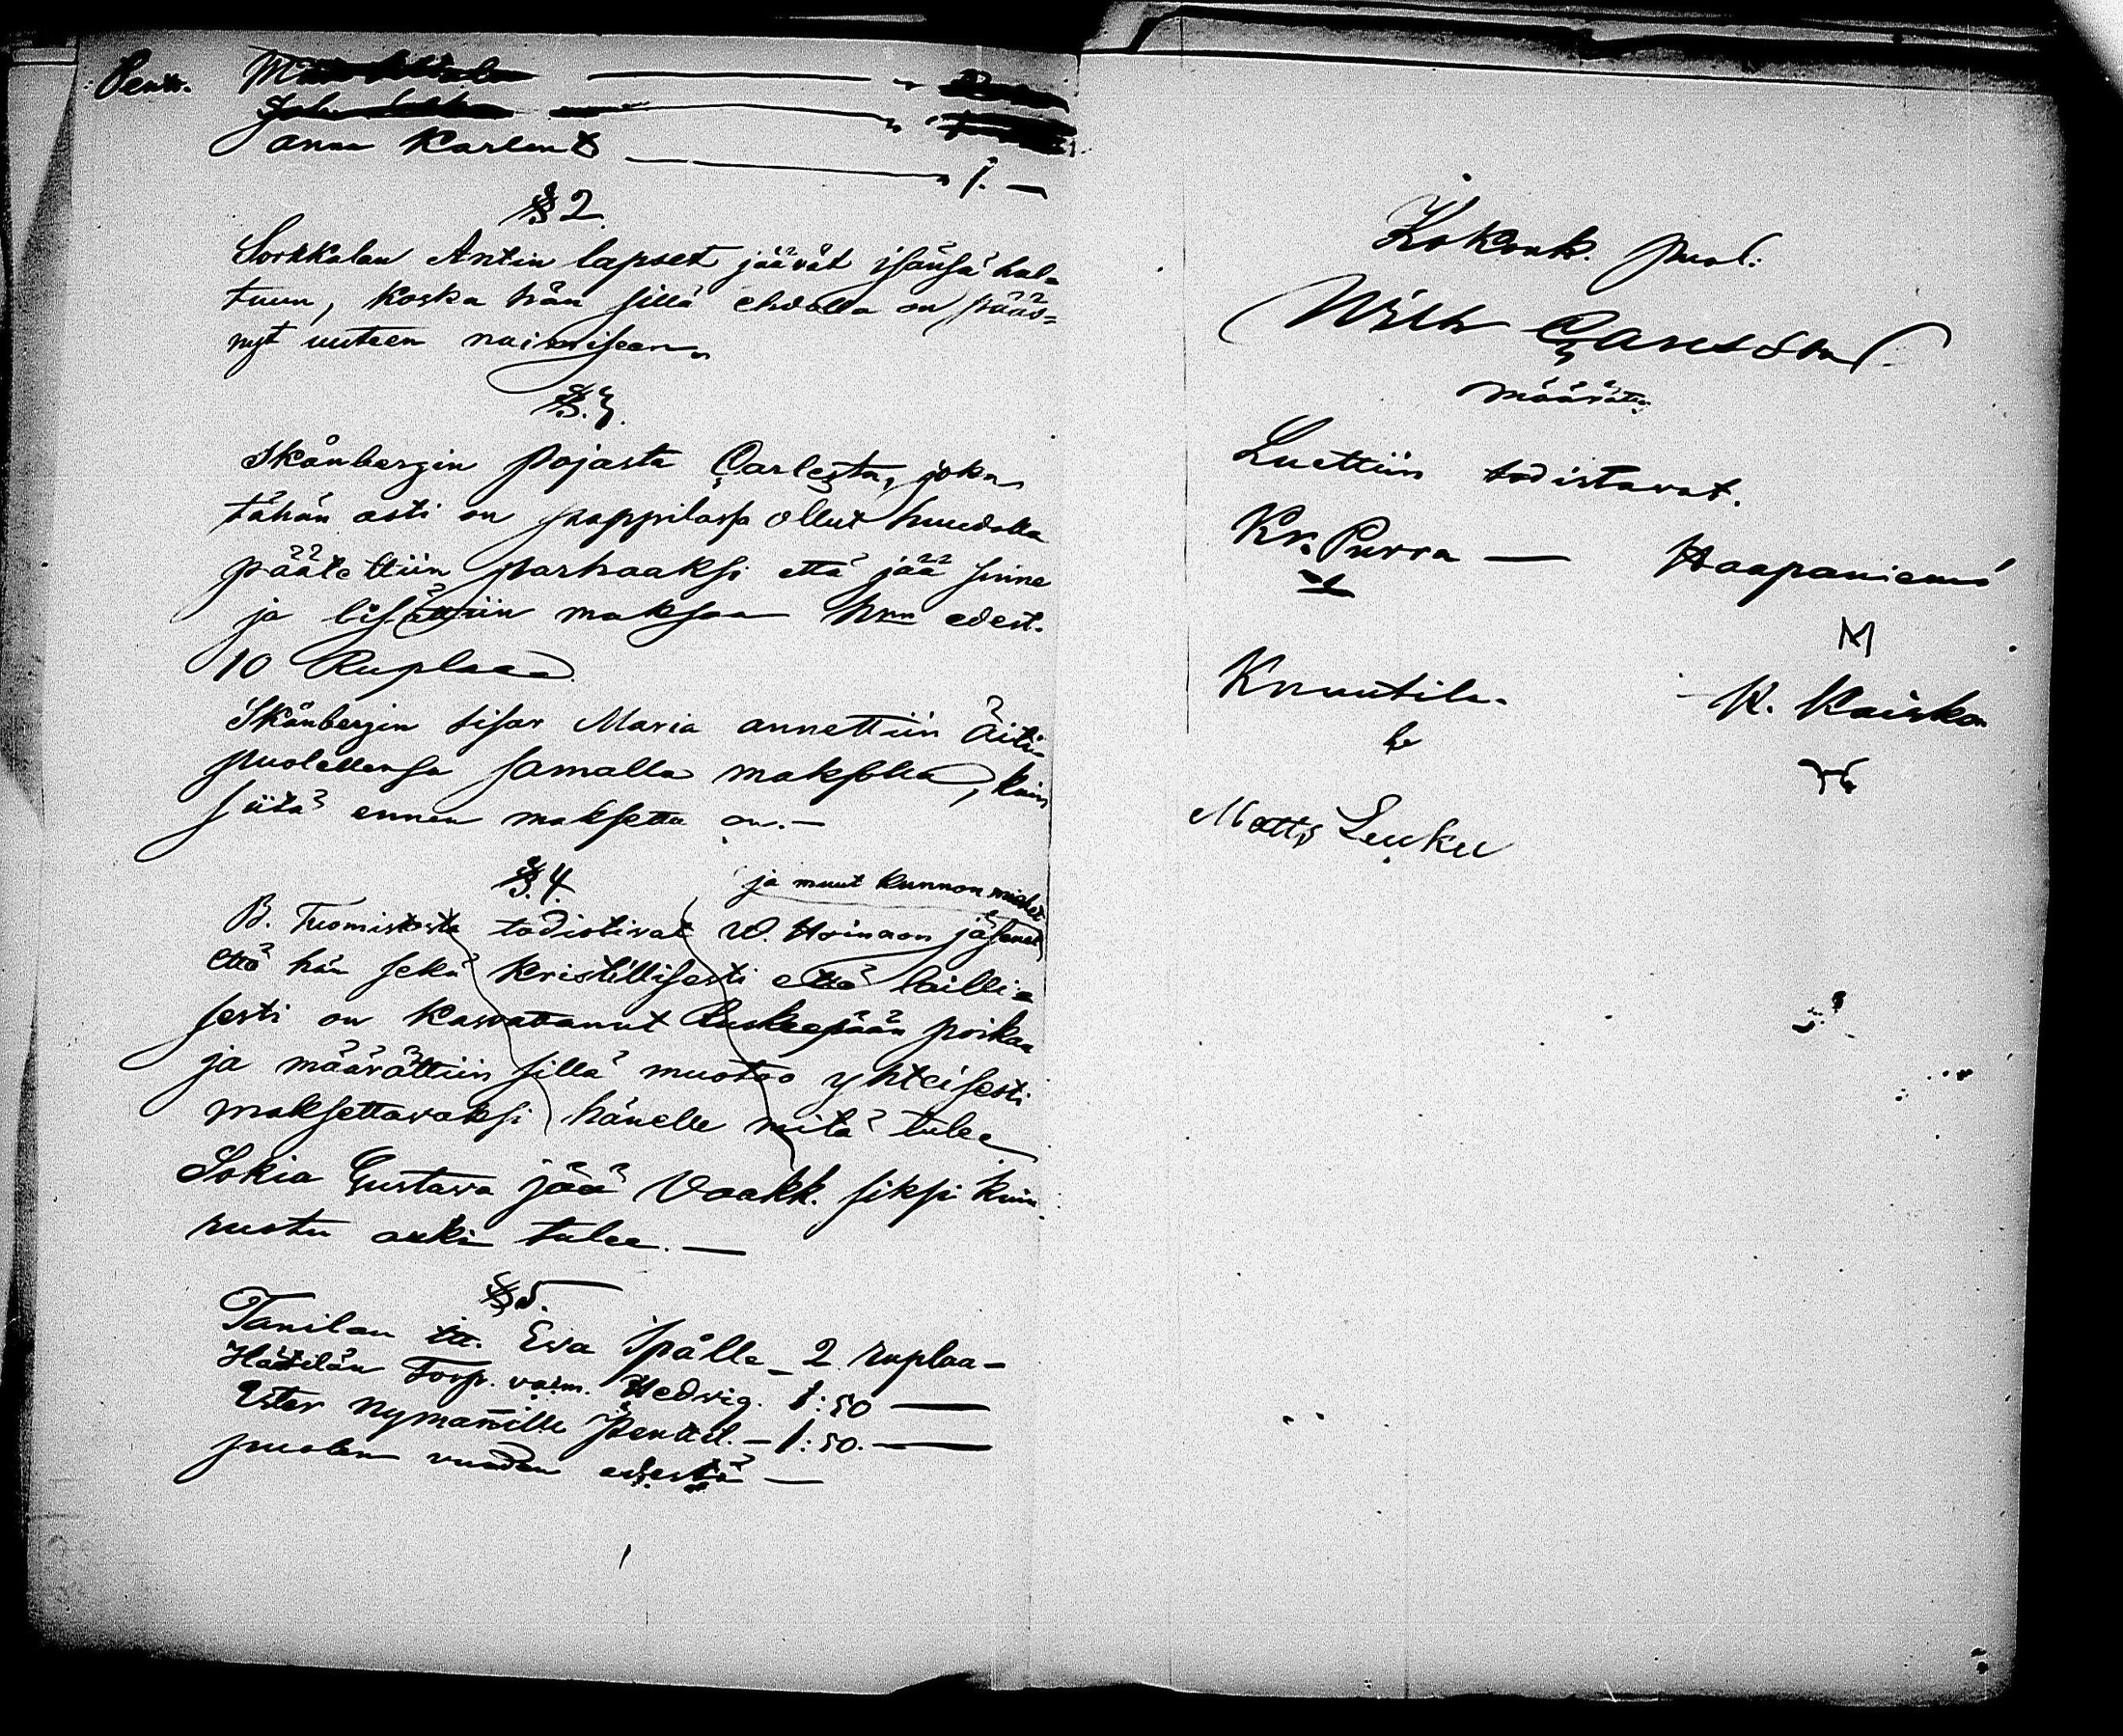 Pentt.
Anna Karlent — " 1. —
§ 2.
Sorkkalan Antin lapset jäävät isänsä hal=
tuun, koska hän sillä ehdolla on pääs=
nyt uuteen naimiseen.
§. 3.
Skånbergin pojasta Carlesta, joka
tähän asti on pappilassa ollut huudolla
päätettiin parhaaksi että jää sinne
ja lisättiin maksaa hnn edest.
10 Ruplaa
Skånbergin sisar Maria annettiin Äiti=
puolellensa samalla maksolla, kuin
siitä ennen maksettu on. —
§. 4.
ja muut kunnon miehet
B. Tuomistosta todistivat W. Hoinaon jäsenet
että hän sekä kristillisesti että lailli=
sesti on kasvatanut Ruskeepään poikaa
ja määrättiin sillä muotoo yhteisesti
maksettavaksi hänelle mitä tulee
Sokia Gustava jää Vaakk. siksi kuin
ruotu auki tulee. —
§ 5.
Tanilan tt. Eva Spålle — 2 ruplaa —
Hätilän Torp. vaim. Hedvig. 1:50 —
Ester Nymannille Penttil. — 1:50. —
puolen vuoden edestä —
Kokouk. puol.
Wilh Carlsson
määrätty
Luettiin todistavat.
Kr. Purra — Haapaniemi
M
Knuutila. K. Kaiskon
Matts Leuku